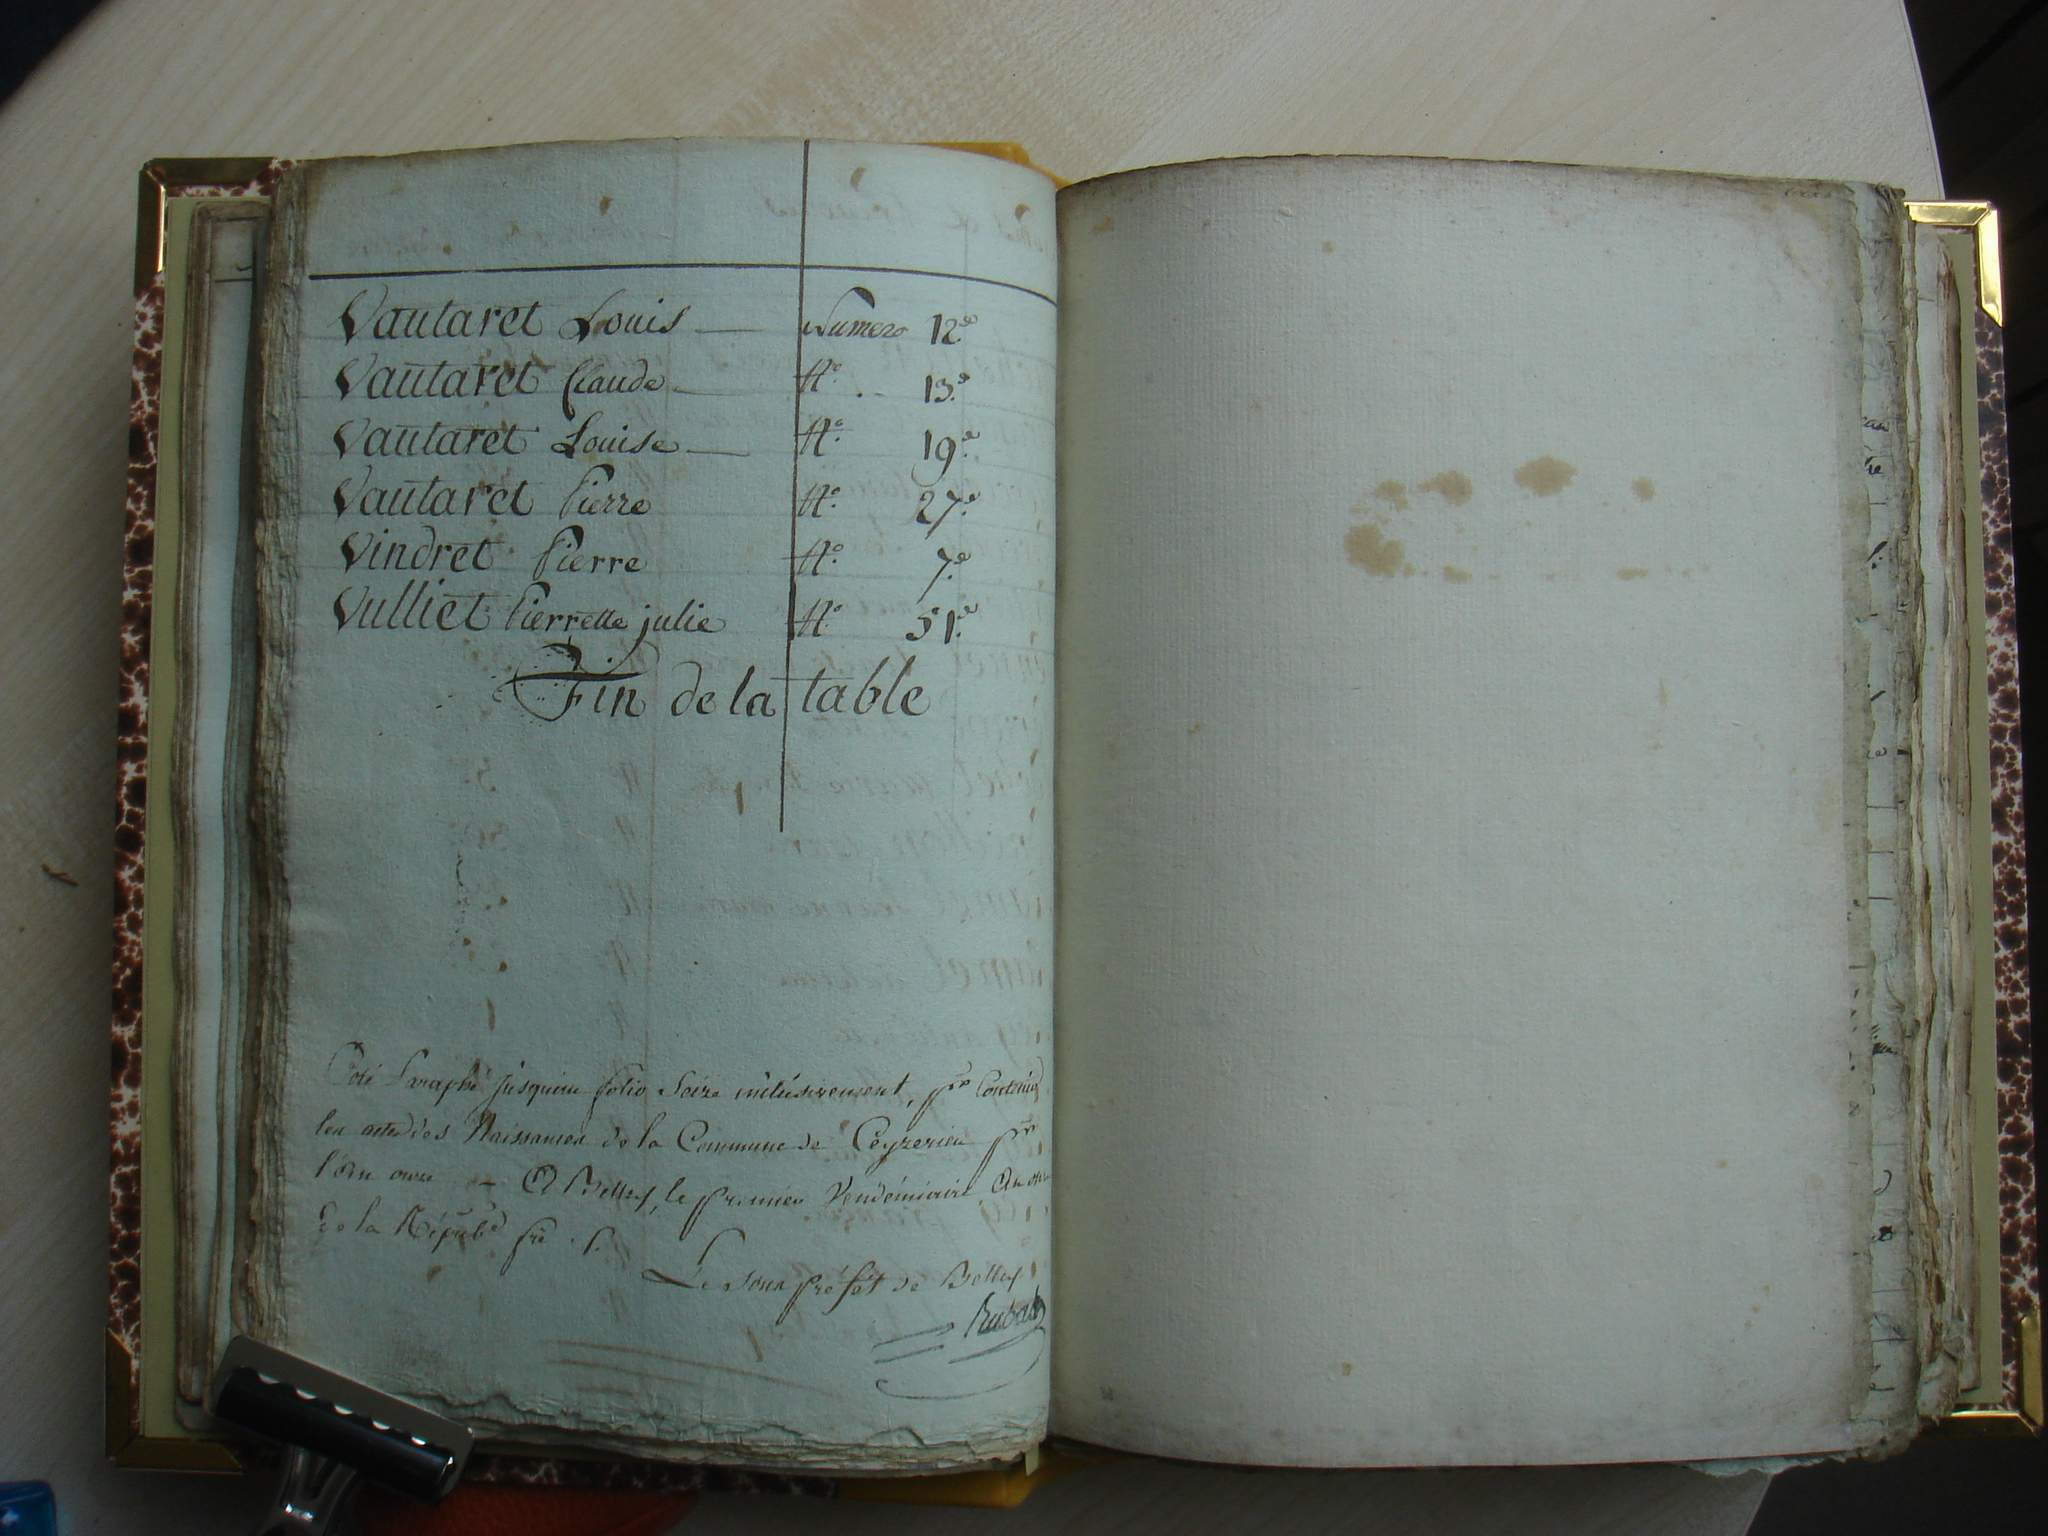 Vautaret Louis — Numero 12.e
Vautaret Claude — N.o 13.e
Vautaret Louise — N.o 19.e
Vautaret Pierre N.o 27.e
Vindret Pierre N.o 7.e
Vulliet Pierrette julie N.o 51.e
Fin de la table
Coté Paraphé jusqu'au folio Seize inclusivement, pr Contenir
les actes des Naissances de la Commune de Ceyzerieu pr
l'an onze — A Belley, le premier Vendémiaire An onze
de la Répub.
Le Sous préfet de Belley